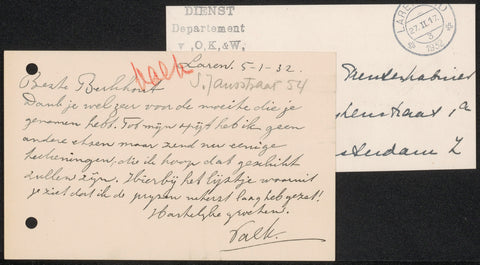 DIENST
Departement
v.,O.,K.,&W.,
LAREN
27.II.17
3
1932
Prentenkabinet
straat 1a
sterdam Z
Valk
Laren. 5-1-32.
S. Jansstraat 54
Beste Berkhout
Dank je wel zeer voor de moeite die je
genomen hebt. Tot mijn spijt heb ik geen
andere etsen maar zend nu eenige
teekeningen, die ik hoop dat geschikt
zullen zijn. Hierbij het lijstje waaruit
je ziet dat ik de prijzen uiterst laag heb gezet!
Hartelijke groeten.
Valk.